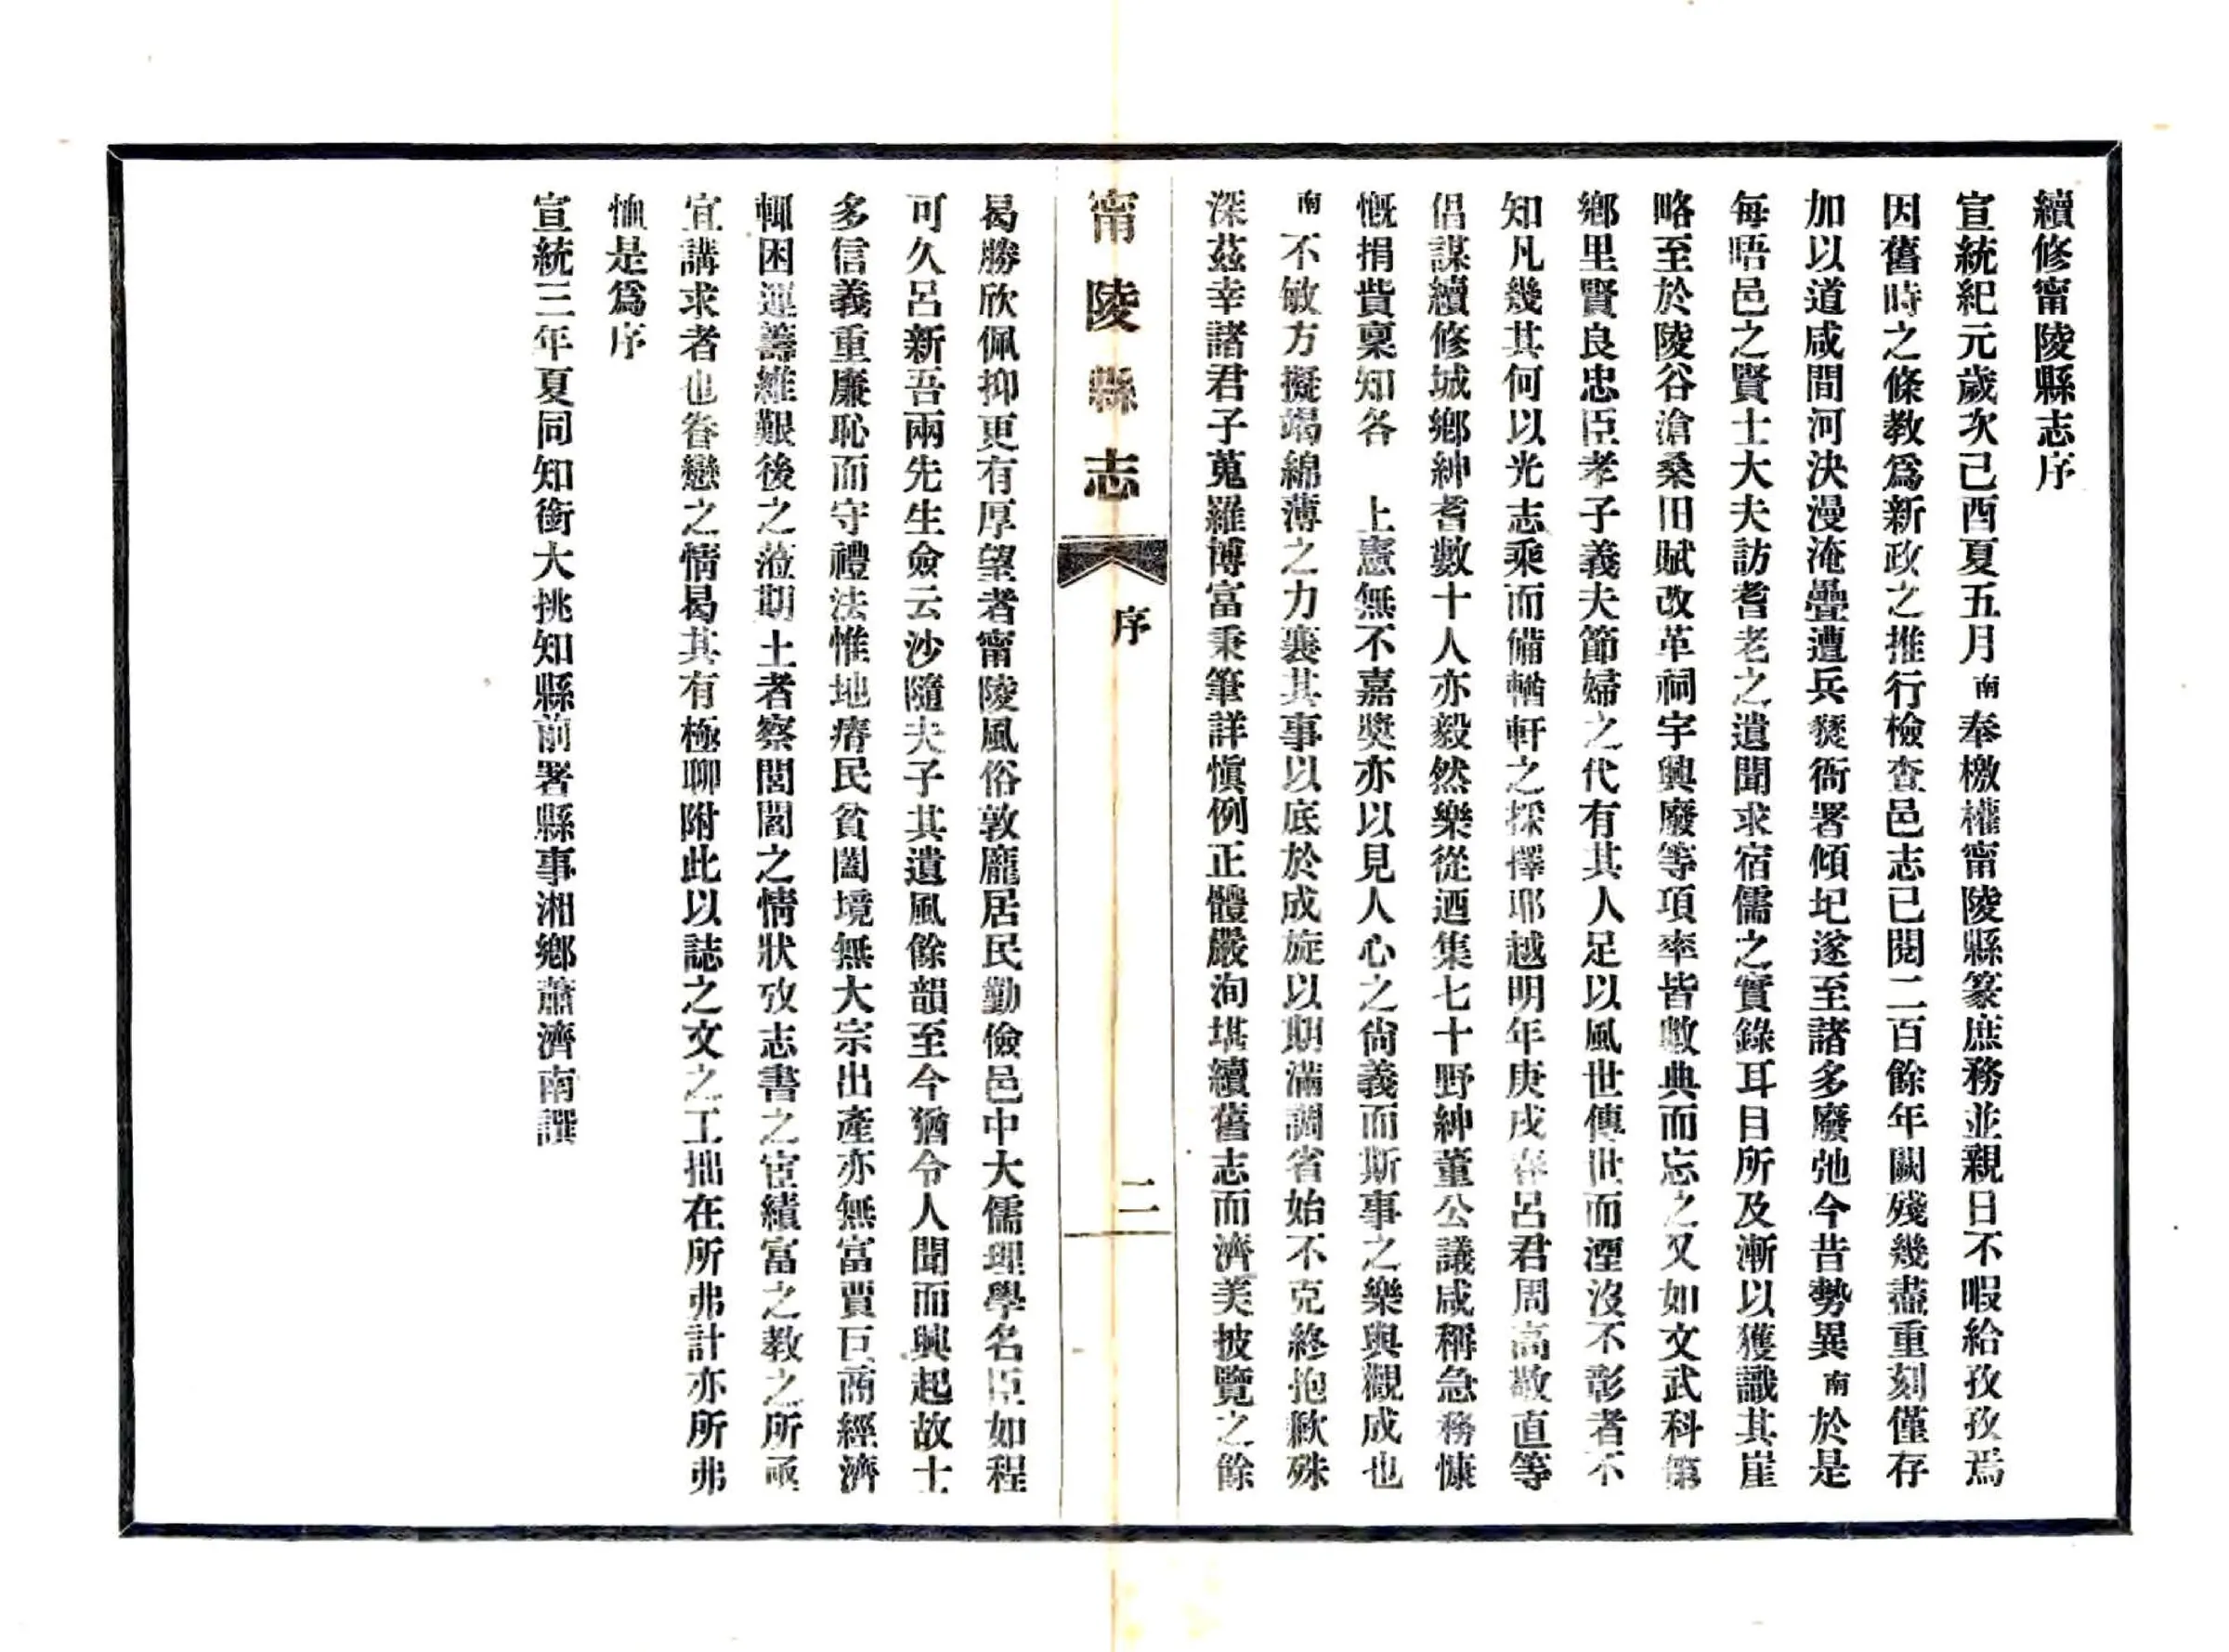 續修甯陵縣志序
宣統紀元歲次己酉夏五月南奉檄權甯陵縣篆庶務並親日不暇給孜孜焉
因舊時之條教爲新政之推行檢查邑志已閱二百餘年闕殘幾盡重刻僅存
加以道咸間河決漫淹疊遭兵燹衙署傾圯遂至諸多廢弛今昔勢異南於是
每晤邑之賢士大夫訪耆老之遺聞求宿儒之實錄耳目所及漸以獲識其崖
略至於陵谷滄桑田賦改革祠宇興廢等項率皆數典而忘之又如文武科第
鄉里賢良忠臣孝子義夫節婦之代有其人足以風世傳世而湮沒不彰者不
知凡幾其何以光志乘而備輶軒之採擇耶越明年庚戌春呂君周高敬直等
倡謀續修城鄉紳耆數十人亦毅然樂從迺集七十野紳董公議咸稱急務慷
慨捐貲稟知各 上憲無不嘉奬亦以見人心之尙義而斯事之樂與觀成也
南不敏方擬竭綿薄之力襄其事以底於成旋以期滿調省始不克終抱歉殊
深茲幸諸君子蒐羅博富秉筆詳愼例正體嚴洵堪續舊志而濟美披覽之餘
甯陵縣志 序 二
曷勝欣佩抑更有厚望者甯陵風俗敦龐居民勤儉邑中大儒理學名臣如程
可久呂新吾兩先生僉云沙隨夫子其遺風餘韻至今猶令人聞而興起故士
多信義重廉恥而守禮法惟地瘠民貧闔境無大宗出產亦無富賈巨商經濟
輒困運籌維艱後之涖期土者察閭閻之情狀攷志書之宦績富之教之所亟
宜講求者也眷戀之情曷其有極聊附此以誌之文之工拙在所弗計亦所弗
恤是爲序
宣統三年夏同知銜大挑知縣前署縣事湘鄉蕭濟南譔